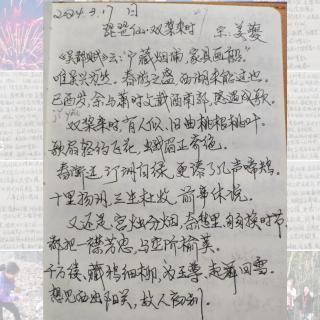 2024.3.17日
琵琶仙·双桨来时
宋·姜夔
《吴都赋》云:"户藏烟浦,家具画船。"
唯吴兴为然。春游之盛,西湖未能过也。
己酉岁,余与萧时父载酒南郭,感遇成歌。
双桨来时,有人似、旧曲桃根桃叶。
歌扇轻约飞花,蛾眉正奇绝。
春渐远,汀洲自绿,更添了几声啼鴂。
十里扬州,三生杜牧,前事休说。
又还是、宫烛分烟,奈愁里、匆匆换时节。
都把一襟芳思,与空阶榆荚。
千万缕、藏鸦细柳,为玉尊、起舞回雪。
想见西出阳关,故人初别。